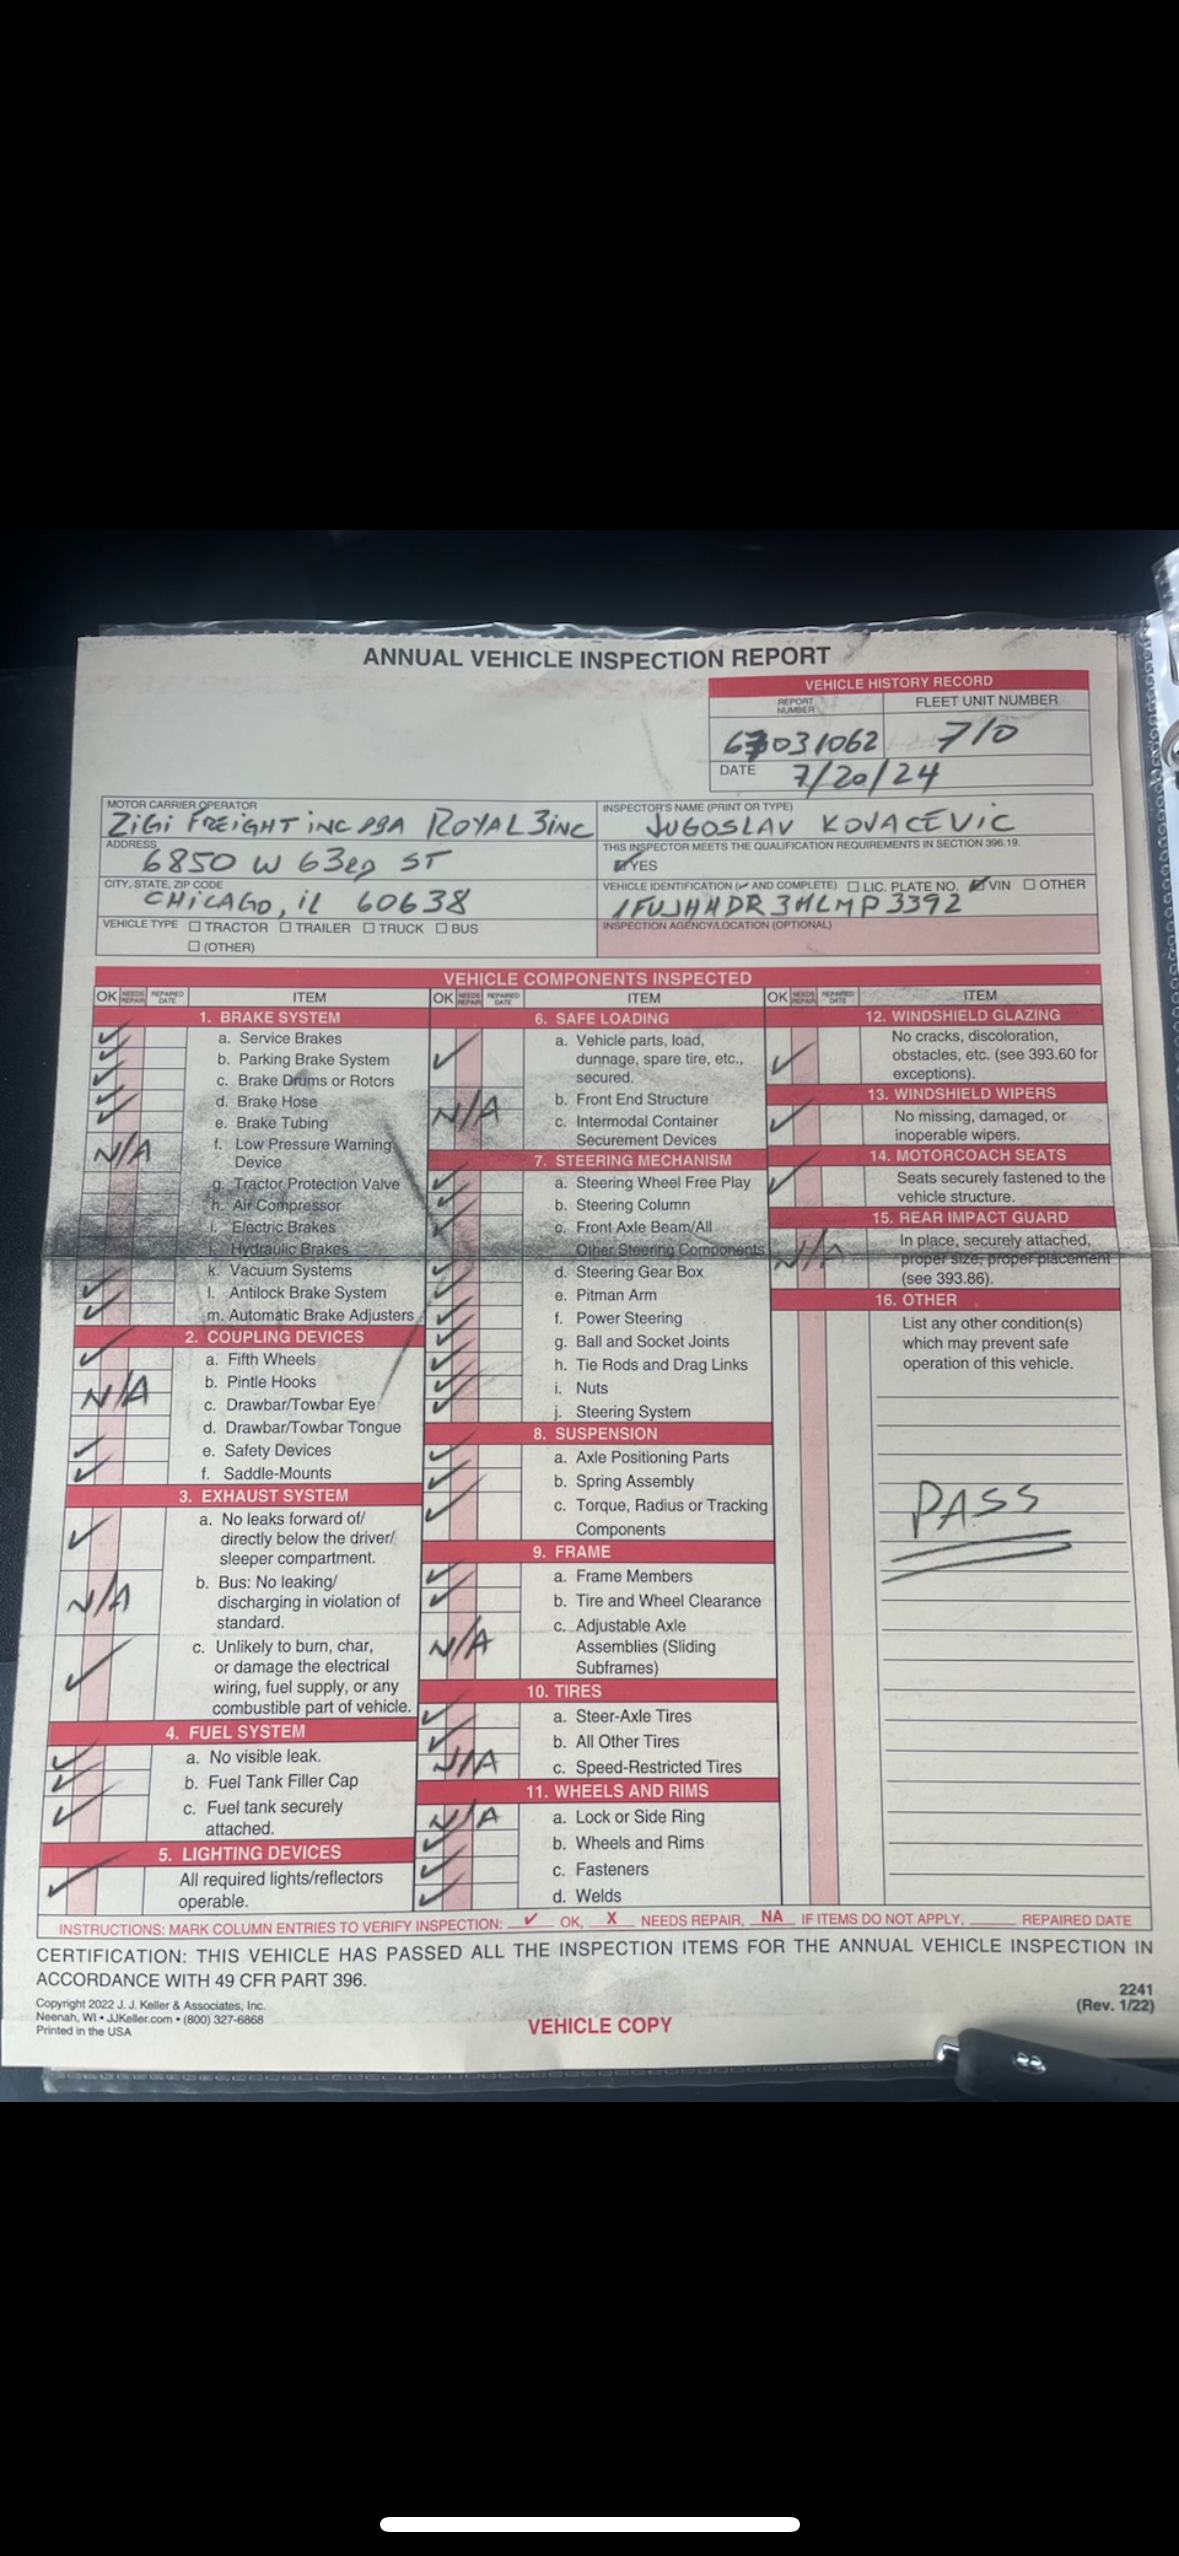 ANNUAL VEHICLE INSPECTION REPORT
VEHICLE HISTORY RECORD
REPORT NUMBER
FLEET UNIT NUMBER
031062
710
DATE 7/20/24
MOTOR CARRIER OPERATOR
ZIGI FREIGHT INC DBA ROYAL 3 INC
INSPECTOR'S NAME (PRINT OR TYPE)
JUGOSLAV KOVACEVIC
ADDRESS
6850 W 63RD ST
THIS INSPECTOR MEETS THE QUALIFICATION REQUIREMENTS IN SECTION 396.19.
✓ YES
CITY, STATE, ZIP CODE
CHICAGO, IL 60638
VEHICLE IDENTIFICATION (✓ AND COMPLETE) ☐ LIC. PLATE NO. ✓ VIN ☐ OTHER
1FUJHHDR3MLMP3392
VEHICLE TYPE ☐ TRACTOR ☐ TRAILER ☐ TRUCK ☐ BUS
☐ (OTHER)
INSPECTION AGENCY/LOCATION (OPTIONAL)
VEHICLE COMPONENTS INSPECTED
OK NEEDS REPAIR REPAIRED DATE ITEM
1. BRAKE SYSTEM
✓ a. Service Brakes
✓ b. Parking Brake System
✓ c. Brake Drums or Rotors
✓ d. Brake Hose
✓ e. Brake Tubing
N/A f. Low Pressure Warning
Device
g. Tractor Protection Valve
h. Air Compressor
i. Electric Brakes
j. Hydraulic Brakes
k. Vacuum Systems
✓ l. Antilock Brake System
✓ m. Automatic Brake Adjusters
2. COUPLING DEVICES
✓ a. Fifth Wheels
N/A b. Pintle Hooks
c. Drawbar/Towbar Eye
d. Drawbar/Towbar Tongue
✓ e. Safety Devices
✓ f. Saddle-Mounts
3. EXHAUST SYSTEM
✓ a. No leaks forward of/
directly below the driver/
sleeper compartment.
N/A b. Bus: No leaking/
discharging in violation of
standard.
✓ c. Unlikely to burn, char,
or damage the electrical
wiring, fuel supply, or any
combustible part of vehicle.
4. FUEL SYSTEM
✓ a. No visible leak.
✓ b. Fuel Tank Filler Cap
✓ c. Fuel tank securely
attached.
5. LIGHTING DEVICES
✓ All required lights/reflectors
operable.
OK NEEDS REPAIR REPAIRED DATE ITEM
6. SAFE LOADING
✓ a. Vehicle parts, load,
dunnage, spare tire, etc.,
secured.
N/A b. Front End Structure
c. Intermodal Container
Securement Devices
7. STEERING MECHANISM
✓ a. Steering Wheel Free Play
✓ b. Steering Column
✓ c. Front Axle Beam/All
Other Steering Components
✓ d. Steering Gear Box
✓ e. Pitman Arm
✓ f. Power Steering
✓ g. Ball and Socket Joints
✓ h. Tie Rods and Drag Links
✓ i. Nuts
✓ j. Steering System
8. SUSPENSION
✓ a. Axle Positioning Parts
✓ b. Spring Assembly
✓ c. Torque, Radius or Tracking
Components
9. FRAME
✓ a. Frame Members
✓ b. Tire and Wheel Clearance
N/A c. Adjustable Axle
Assemblies (Sliding
Subframes)
10. TIRES
✓ a. Steer-Axle Tires
✓ b. All Other Tires
N/A c. Speed-Restricted Tires
11. WHEELS AND RIMS
N/A a. Lock or Side Ring
✓ b. Wheels and Rims
✓ c. Fasteners
✓ d. Welds
OK NEEDS REPAIR REPAIRED DATE ITEM
12. WINDSHIELD GLAZING
✓ No cracks, discoloration,
obstacles, etc. (see 393.60 for
exceptions).
13. WINDSHIELD WIPERS
✓ No missing, damaged, or
inoperable wipers.
14. MOTORCOACH SEATS
✓ Seats securely fastened to the
vehicle structure.
15. REAR IMPACT GUARD
N/A In place, securely attached,
proper size, proper placement
(see 393.86).
16. OTHER
List any other condition(s)
which may prevent safe
operation of this vehicle.
PASS
INSTRUCTIONS: MARK COLUMN ENTRIES TO VERIFY INSPECTION: ✓ OK, X NEEDS REPAIR, NA IF ITEMS DO NOT APPLY, ____ REPAIRED DATE
CERTIFICATION: THIS VEHICLE HAS PASSED ALL THE INSPECTION ITEMS FOR THE ANNUAL VEHICLE INSPECTION IN
ACCORDANCE WITH 49 CFR PART 396.
Copyright 2022 J. J. Keller & Associates, Inc.
Neenah, WI • JJKeller.com • (800) 327-6868
Printed in the USA
VEHICLE COPY
2241
(Rev. 1/22)